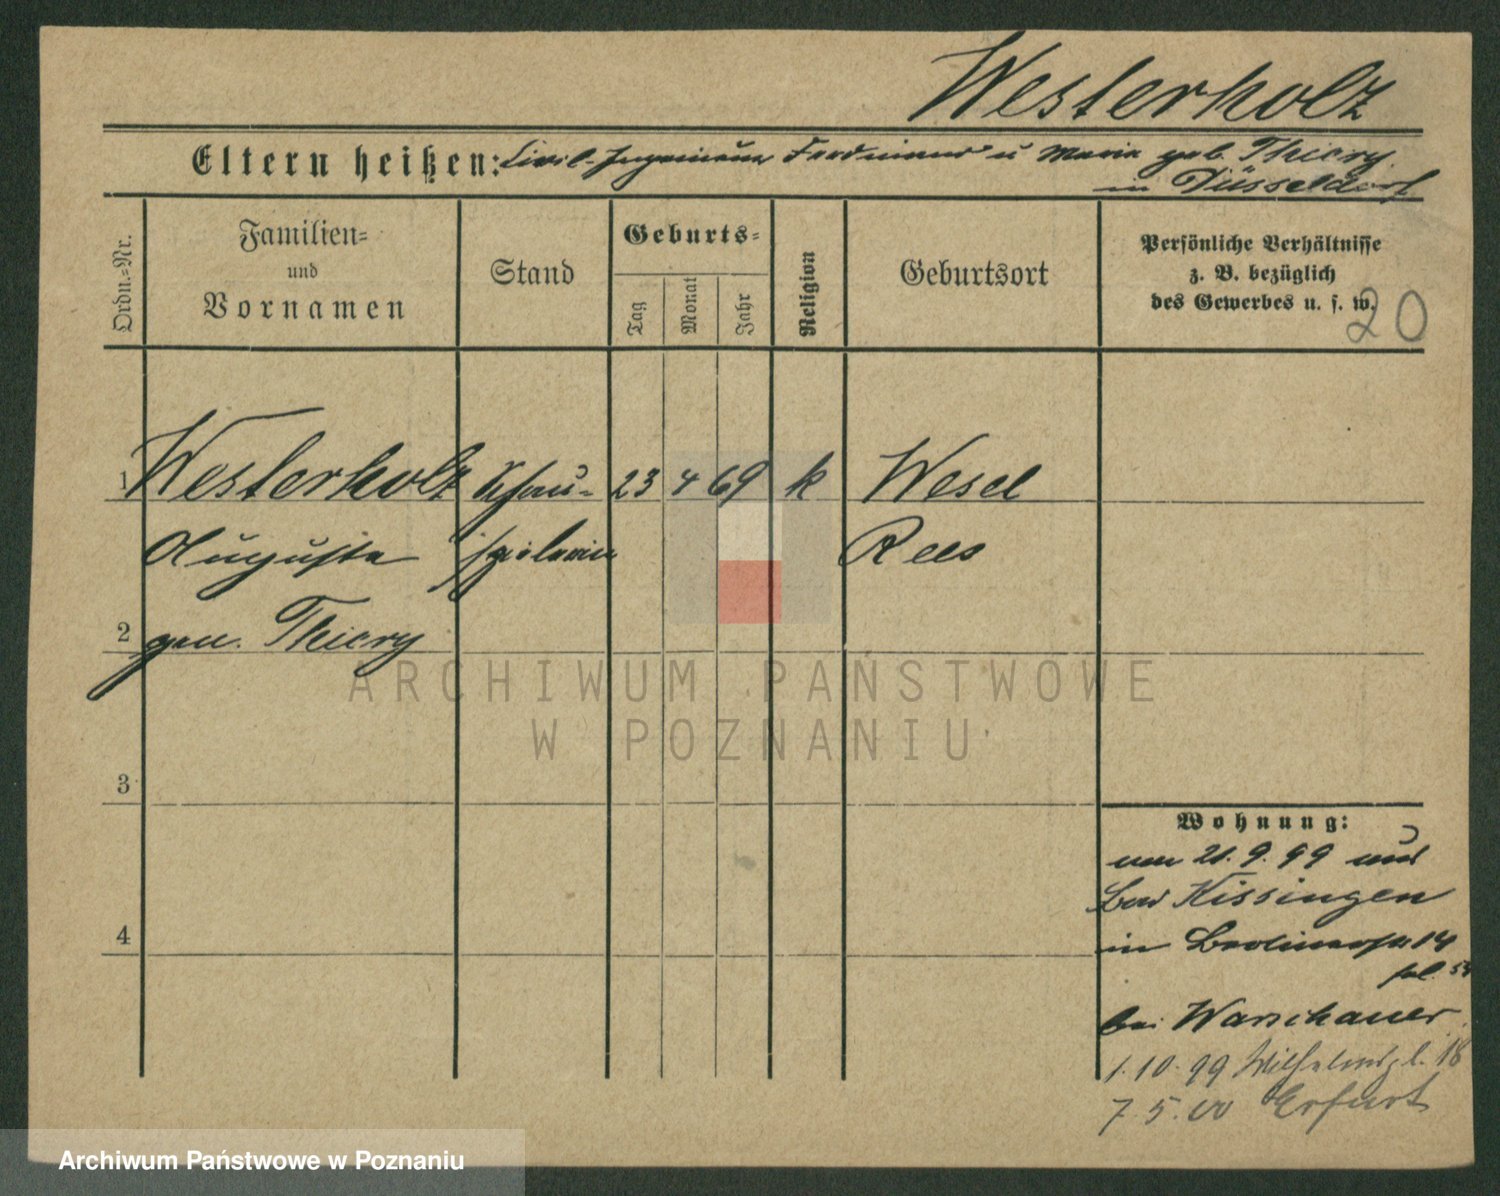 Westerholz
Eltern heißen: Civil-Ingenieur Ferdinand u Maria geb. Thiery
in Düsseldorf
Ordn.=Nr.
Familien=
und
Vornamen
Stand
Geburts=
Tag
Monat
Jahr
Religion
Geburtsort
Persönliche Verhältnisse
z. B. bezüglich
des Gewerbes u. s. w.
20
1 Westerholz Schau- 23 4 69 k Wesel
Auguste spielerin Rees
2 gen. Thiery
3
4
ARCHIWUM PAŃSTWOWE
W POZNANIU
Wohnung:
21. 9. 99 aus
Bad Kissingen
in Berlinerstr 14
bei Warschauer
1. 10. 99 Wilhelmspl. 18
7. 5. 00 Erfurt
Archiwum Państwowe w Poznaniu